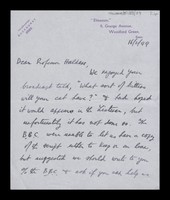 "Pinecroft"
5, George Avenue,
Woodford Green,
Essex
18/1/49
Dear Professor Haldane,
We enjoyed your
broadcast talk, "What sort of kittens
will your cat have?" & had hoped
it would appear in the Listener, but
unfortunately it has not done so. The
B.B.C. were unable to let us have a copy
of the script either to buy or on loan,
but suggested we should write to you
The B.B.C. & ask if you can help us